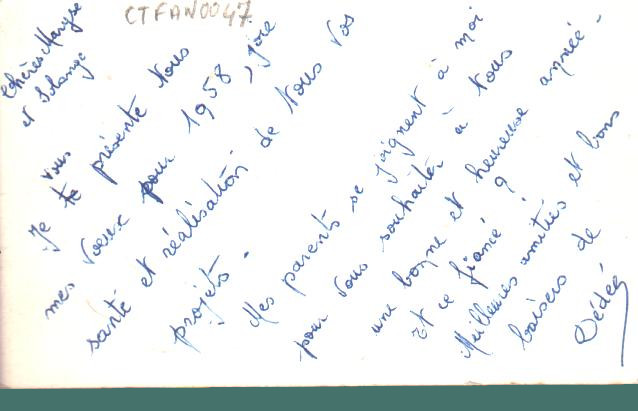 CTFAN0047
Chères Maryse
et Solange
Je te vous présente tous
mes vœux pour 1958, joie
santé et réalisation de tous vos
projets.
Mes parents se joignent à moi
pour vous souhaiter à tous
une bonne et heureuse année.
Et ce fiancé ?
Meilleures amitiés et bons
baisers de
Dédée